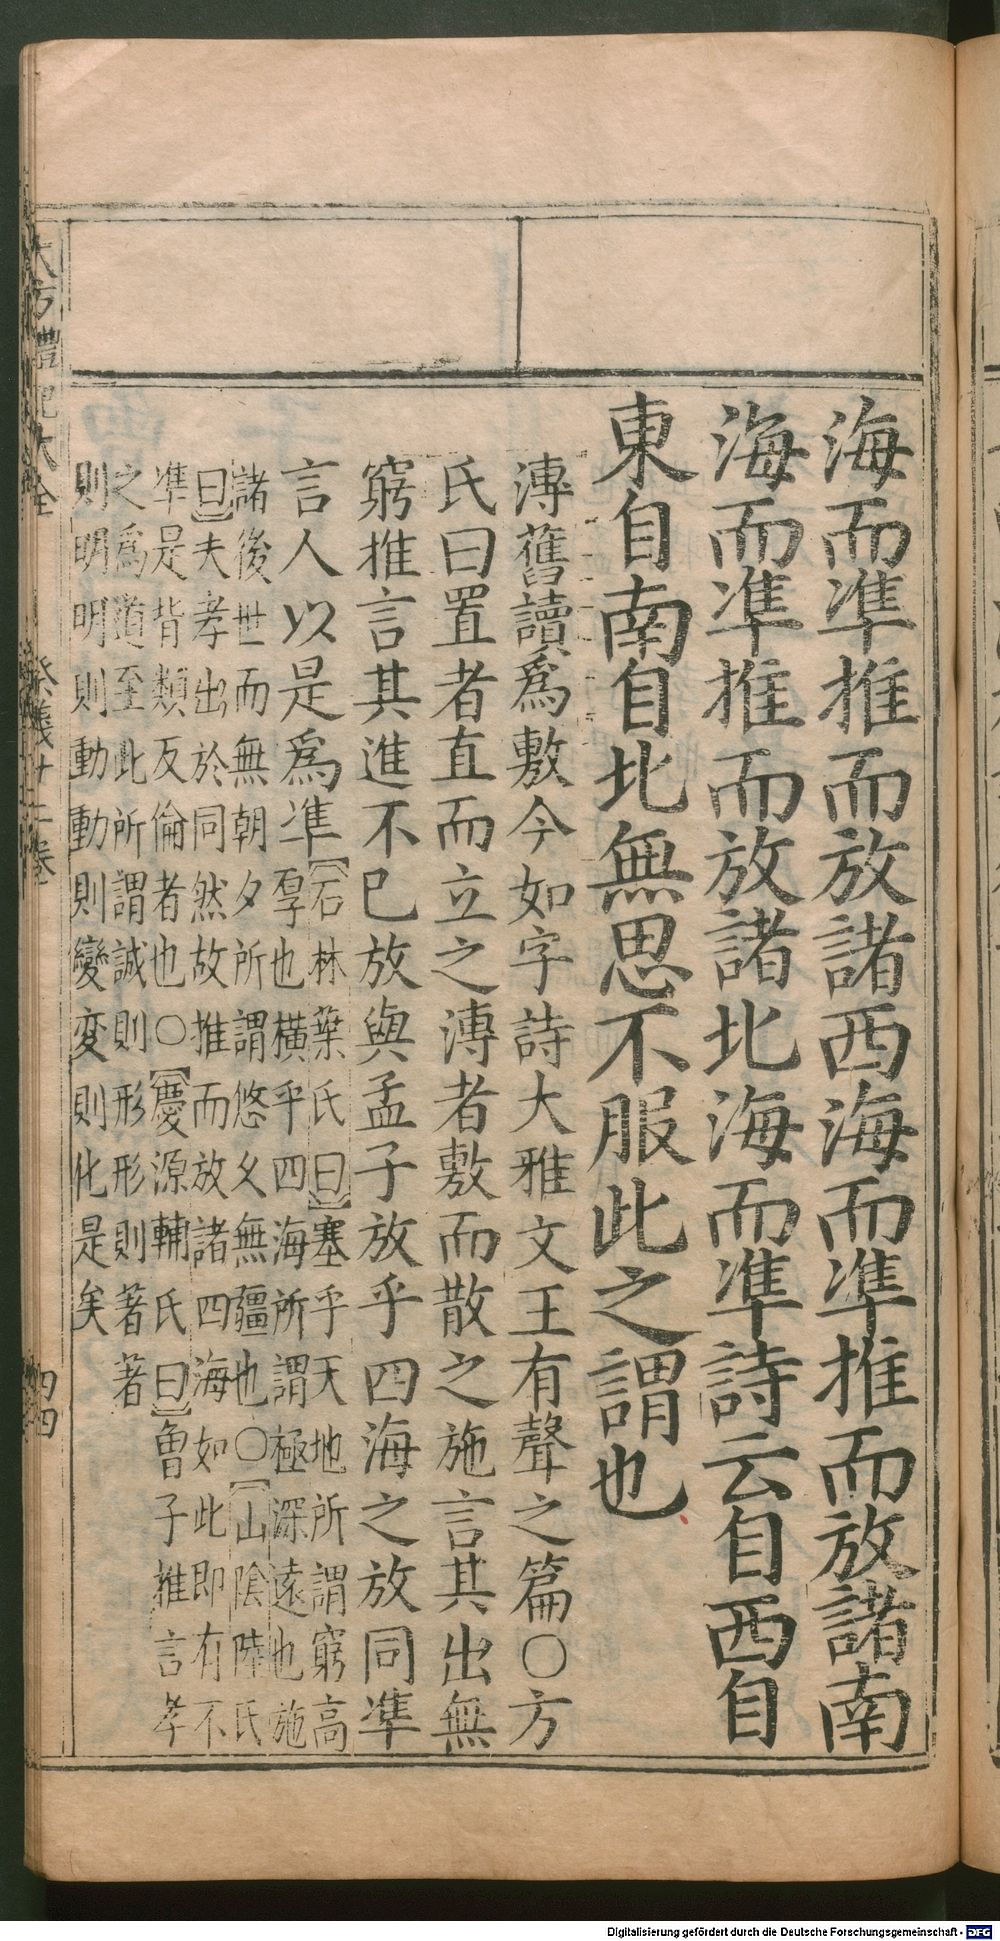 海而準推而放諸西海而準推而放諸南
海而準推而放諸北海而準詩云自西自
東自南自北無思不服此之謂也
溥舊讀爲敷今如字詩大雅文王有聲之篇○方
氏曰置者直而立之溥者敷而散之施言其出無
窮推言其進不已放與孟子放乎四海之放同準
言人以是爲準
【石林葉氏曰】塞乎天地所謂窮高
厚也横乎四海所謂極深遠也施
諸後世而無朝夕所謂悠久無疆也○【山陰陸氏
曰】夫孝出於同然故推而放諸四海如此即有不
準是背類反倫者也○【慶源輔氏曰】曾子推言孝
之爲道至此所謂誠則形形則著著
則明明則動動則變变則化是矣
大方禮記大全 祭義廿二卷 四四
Digitalisierung gefördert durch die Deutsche Forschungsgemeinschaft - DFG